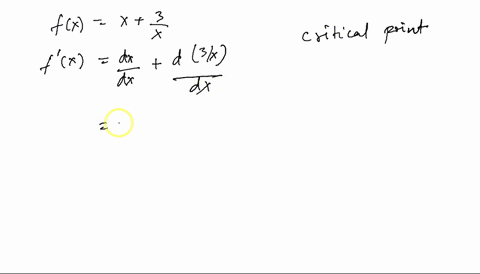 f(x) = x + 3/x
critical print
f'(x) = dx/dx + d(3/x)/dx
=